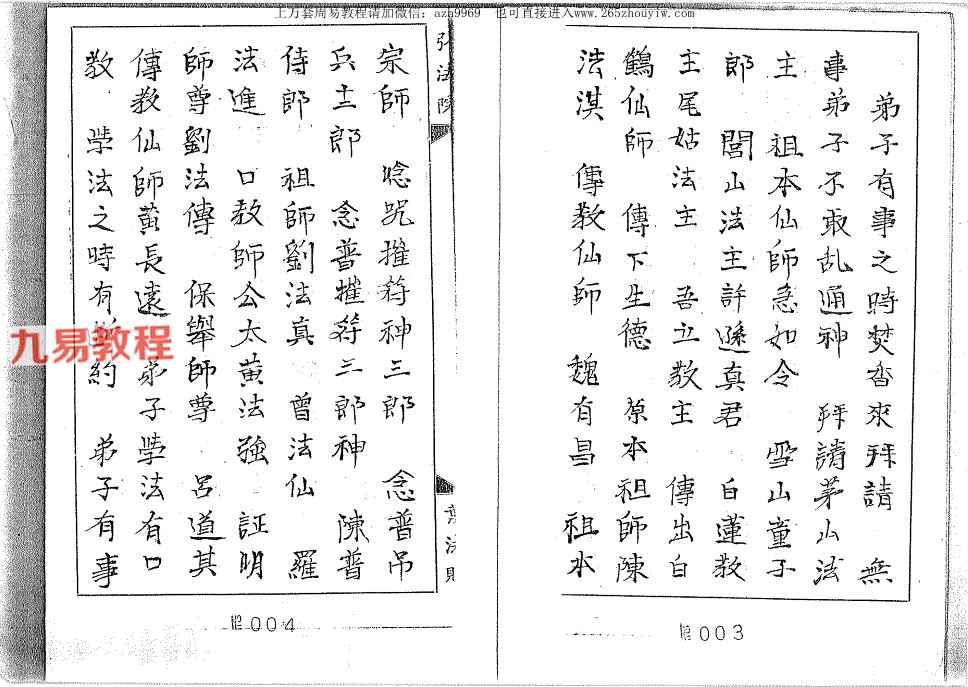 上万套周易教程请加微信：azh9969　也可直接进入www.265zhouyiw.com
弟子有事之時焚香來拜請　無
事弟子不敢乱通神　拜請茅山法
主　祖本仙師急如令　雪山童子
郎　閭山法主許遜真君　白蓮教
主尾姑法主　吾立教主　傳出白
鶴仙師　傳下生德　原本祖師陳
法淇　傳教仙師　魏有昌　祖本
003
宗師　唸咒摧符神三郎　念普吊
兵士郎　念普摧符三郎神　陳普
侍郎　祖師劉法真　曾法仙　羅
法進　口教師公太黃法強　証明
師尊劉法傳　保舉師尊　呂道其
傳教仙師黃長遠　弟子學法有口
教　學法之時有　約　弟子有事
004
九易教程